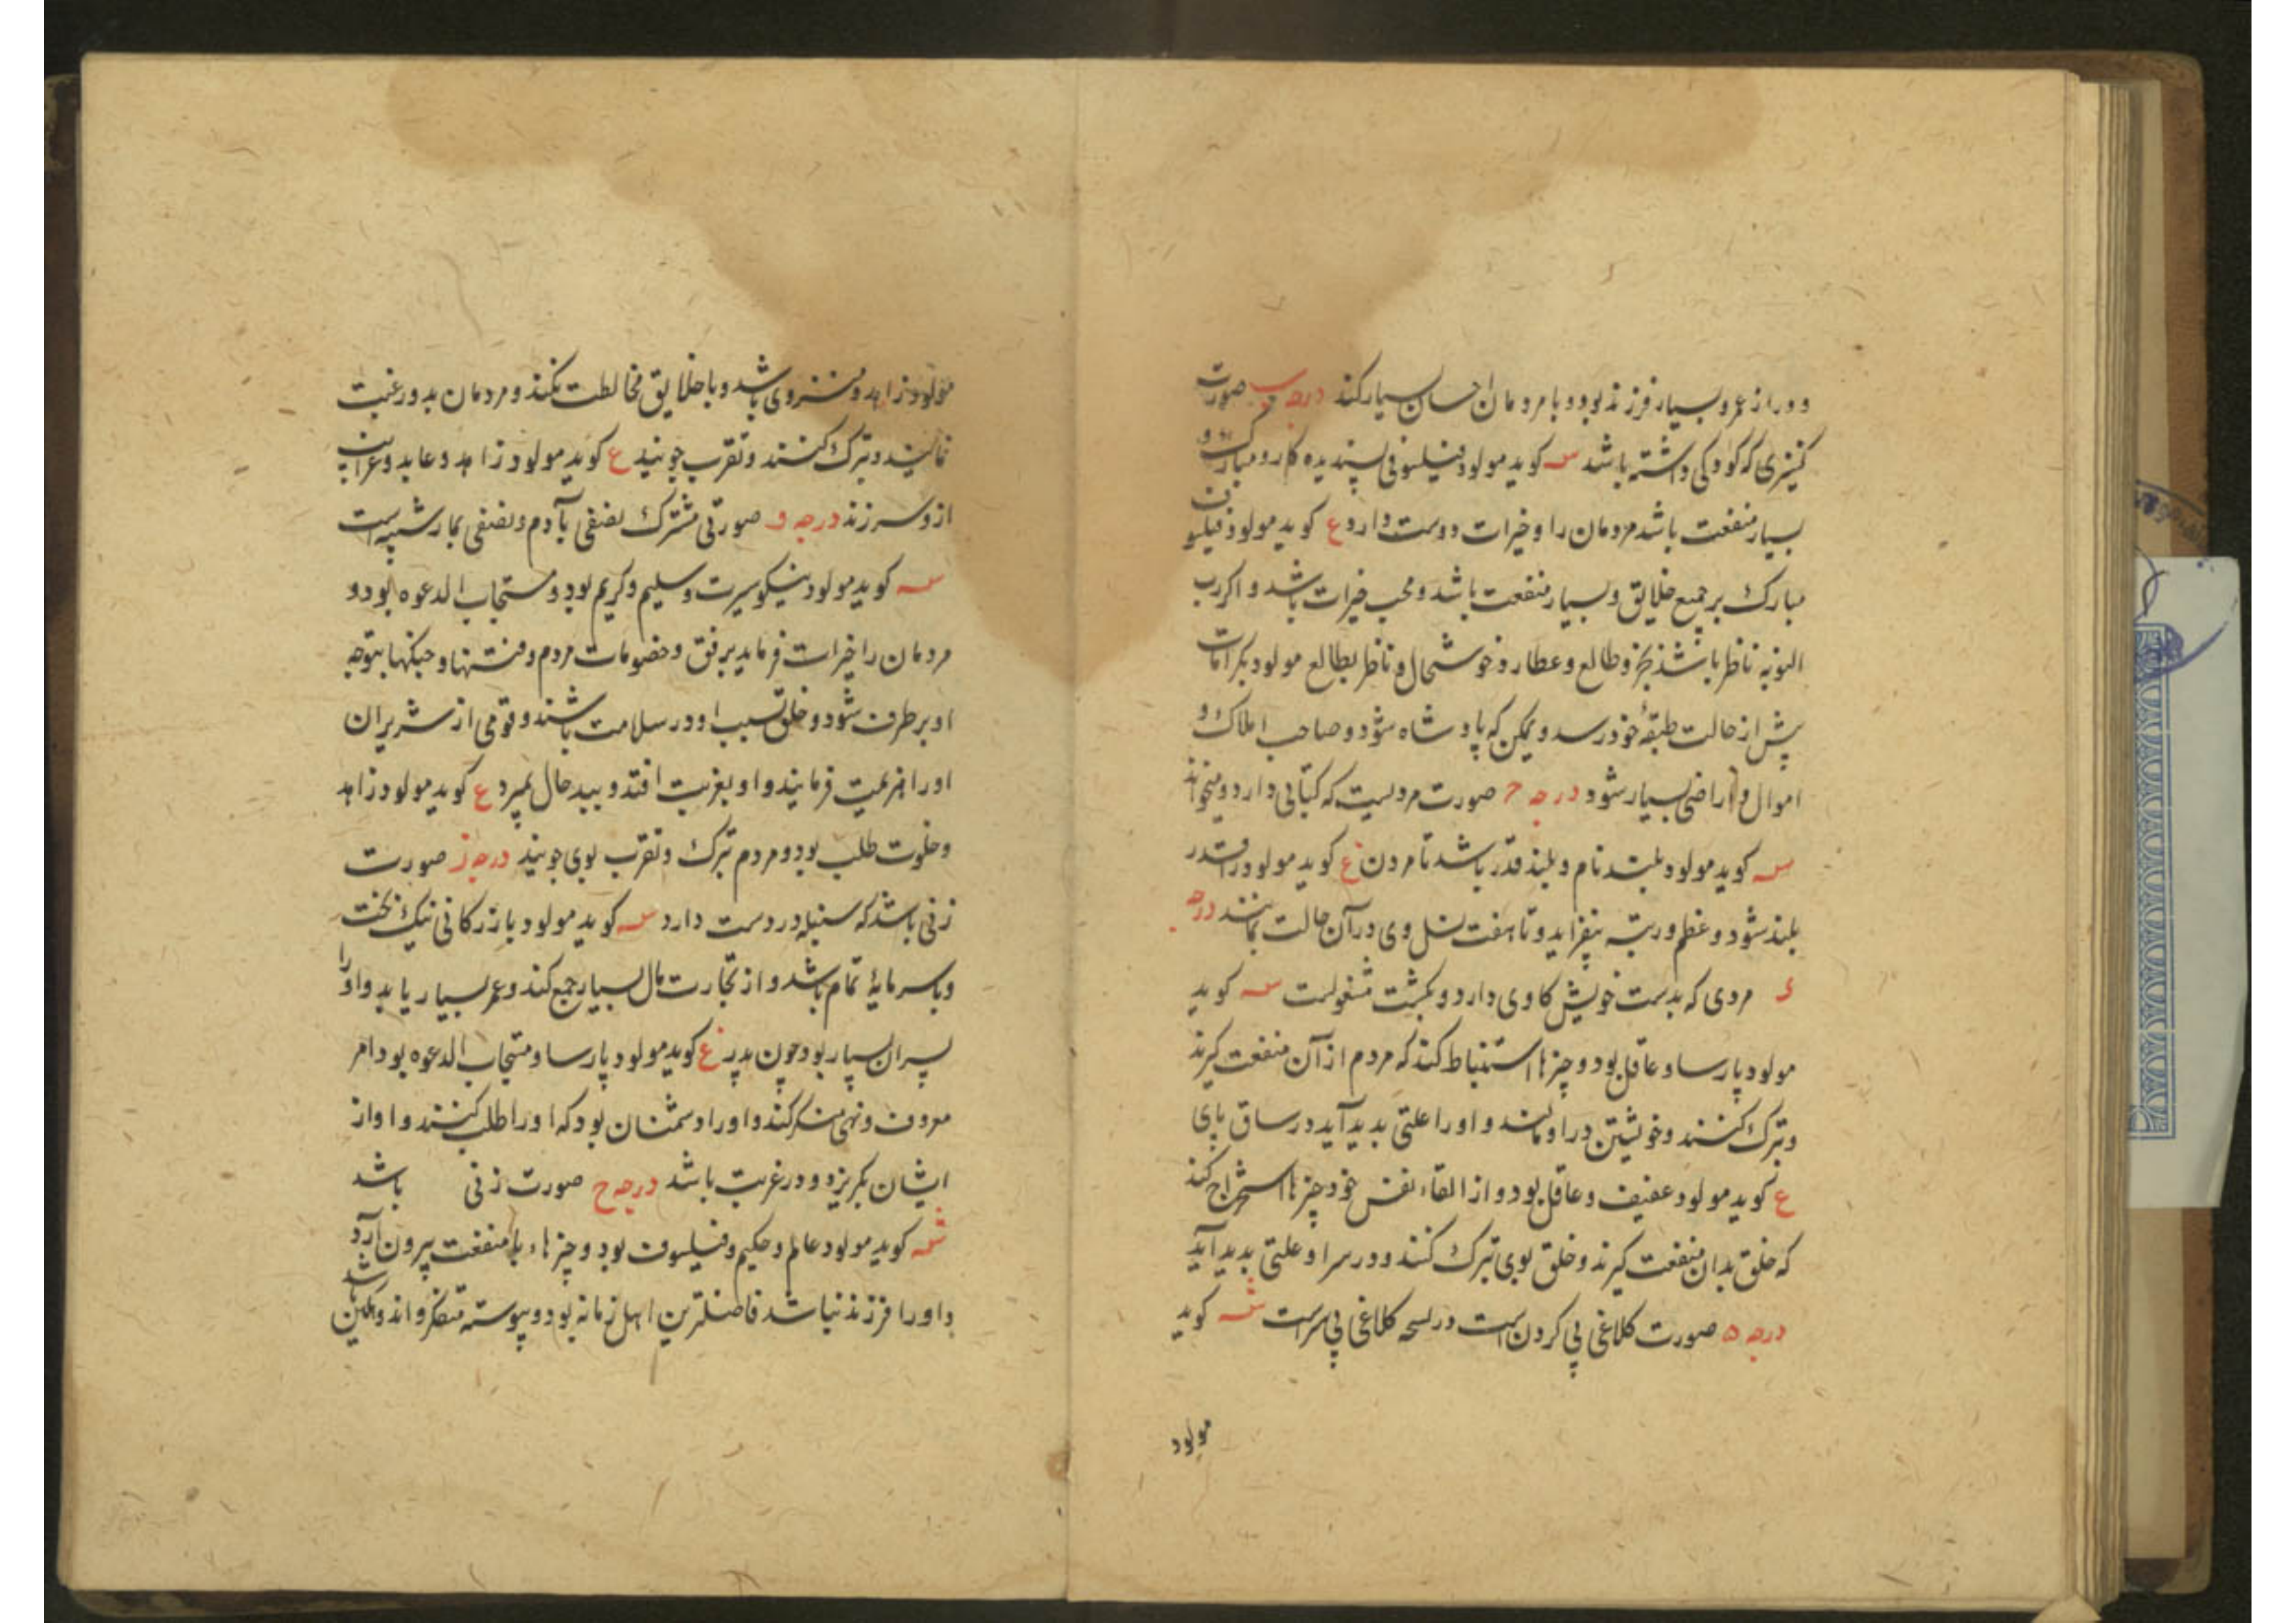 و دراز عمر و بسیار فرزند بود و با مردمان احسان بسیار کند درجه ب صورت
کنیزی که کودکی داشته باشد سه کوید مولود فیلسوفی پسندیده کار و مبارک و
بسیار منفعت باشد مردمان را و خیرات دوست دارد ع کوید مولود فیلسوف
مبارک بر جمیع خلایق و بسیار منفعت باشد و محب خیرات باشد و اکر رب
النوبه ناظر باشد بجزو طالع و عطارد خوشحال و ناظر بطالع مولود بکرامات
پیش از حالت طبقهٔ خود رسد و یمکن که پادشاه شود و صاحب املاک و
اموال و اراضی بسیار شود درجه ج صورت مردیست که کتابی دارد و میخواند
سه کوید مولود بلند نام و بلند قدر باشد تا مردن ع کوید مولود در قدر
بلند شود و عظم و رتبه بیفزاید و تا هفت نسل وی در آن حالت بمانند درجه
د مردی که بدست خویش کاوی دارد و بکشت مشغولست سه کوید
مولود پارسا و عاقل بود و چیزها استنباط کند که مردم از آن منفعت کیرند
و تبرک کنند و خویشتن در او مالند و او را علتی بدید آید در ساق پای
ع کوید مولود عفیف و عاقل بود و از القاء نفس خود چیزها استخراج کند
که خلق بدان منفعت کیرند و خلق بوی تبرک کنند و در سر او علتی بدید آید
درجه ه صورت کلاغی بی کردن است در نسخه کلاغی بی سراست سه کوید
مولود
مولود زاهد و منزوی باشد و با خلایق مخالطت نکند و مردمان بدو رغبت
نمایند و تبرک کنند و تقرب جویند ع کوید مولود زاهد و عابد و غرائب
ازو سر زند درجه و صورتی مشترک نصفی بآدم و نصفی بمار شبیه است
سه کوید مولود نیکو سیرت و سلیم و کریم بود و مستجاب الدعوه بود و
مردمان را خیرات فرماید برفق و خصومات مردم و فتنها و جنکها بتوجه
او بر طرف شود و خلق بسبب او در سلامت باشند و قومی از شریران
او را هزیمت فرمایند و او بغربت افتد و ببد حال بمیرد ع کوید مولود زاهد
و خلوت طلب بود و مردم تبرک و تقرب بوی جویند درجه ز صورت
زنی باشد که سنبله در دست دارد سه کوید مولود بازرکانی نیک بخت
و با سرمایهٔ تمام باشد و از تجارت مال بسیار جمع کند و عمر بسیار یابد و او را
پسران بسیار بود چون بدپر ع کوید مولود پارسا و مستجاب الدعوه بود امر
معروف و نهی منکر کند و او را دشمنان بود که او را طلب کنند و او از
ایشان بکریزد و در غربت باشد درجه ح صورت زنی باشد
سه کوید مولود عالم و حکیم و فیلسوف بود و چیزهاء با منفعت بیرون آرد
و او را فرزند نباشد فاضلترین اهل زمانه بود و پیوسته متفکر و اندوهکین باشد